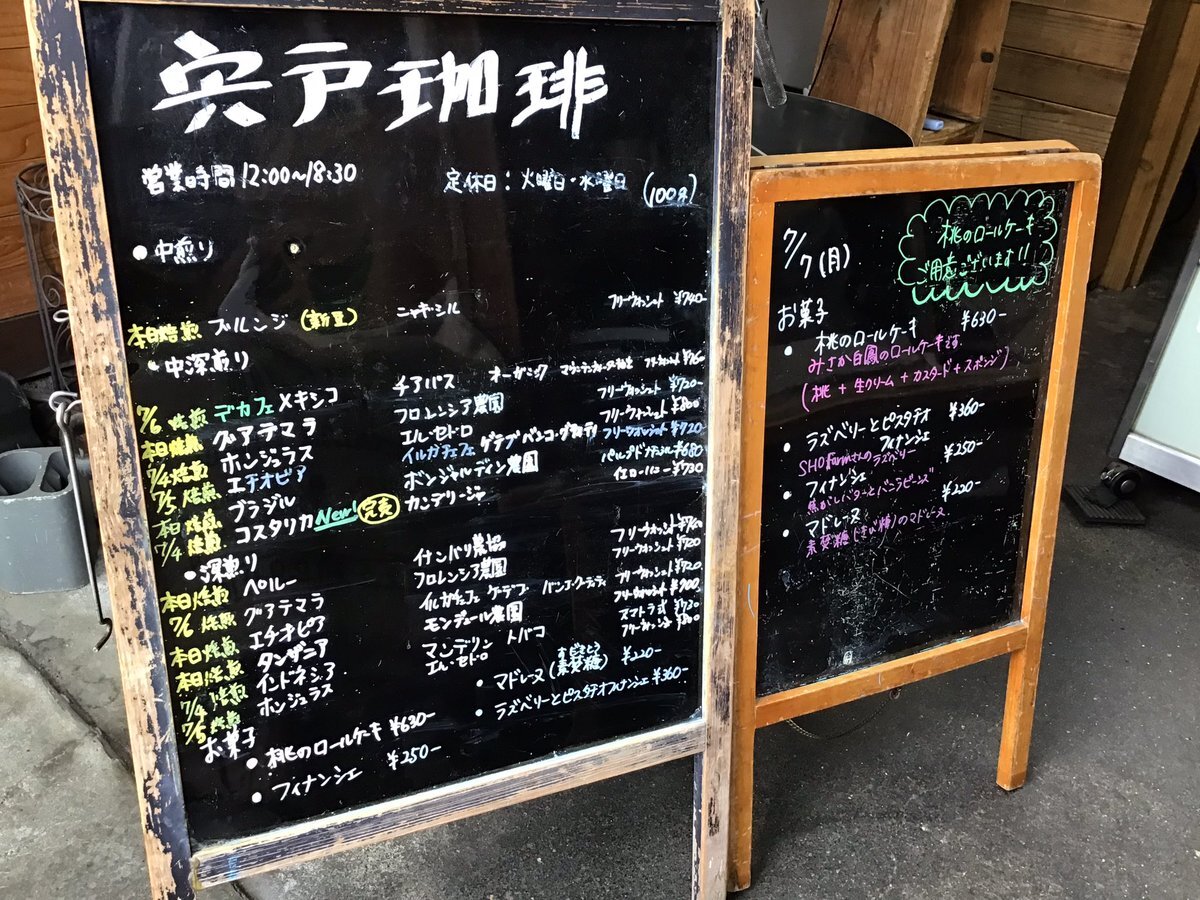 宍戸珈琲
営業時間 12:00〜18:30
定休日：火曜日・水曜日 (100g)
●中煎り
本日焙煎 ブルンジ (新豆) ニャキシル フリーウォッシュト ¥740-
●中深煎り
7/6 焙煎 デカフェ メキシコ チアパス オーガニック マウンテンウォーター フリーウォッシュト ¥760
本日焙煎 グアテマラ フロレンシア農園 フリーウォッシュト ¥720-
7/4 焙煎 ホンジュラス エル・セドロ フリーウォッシュト ¥800
7/5 焙煎 エチオピア イルガチェフェ ゲデブ バンコ・ゴティティ フリーウォッシュト ¥720
本日焙煎 ブラジル ボンジャルディン農園 パルプドナチュラル ¥680
7/4 焙煎 コスタリカ New! 完売 カンデリージャ イエローハニー ¥730
●深煎り
本日焙煎 ペルー インバリ農協 フリーウォッシュト ¥740
7/6 焙煎 グアテマラ フロレンシア農園 フリーウォッシュト ¥720
本日焙煎 エチオピア イルガチェフェ ゲデブ バンコ・ゴティティ フリーウォッシュト ¥720
本日焙煎 タンザニア モンデュール農園 フリーウォッシュト ¥700
7/4 焙煎 インドネシア マンデリン トバコ スマトラ式 ¥730
7/5 焙煎 ホンジュラス エル・セドロ フリーウォッシュト ¥800
お菓子
●桃のロールケーキ ¥630-
●フィナンシェ ¥250-
●マドレーヌ (素焚糖) ¥220-
●ラズベリーとピスタチオフィナンシェ ¥360-
7/7(月)
桃のロールケーキ
ご用意ございます!!
お菓子
●桃のロールケーキ ¥630-
みさか白鳳のロールケーキです
(桃+生クリーム+カスタード+スポンジ)
●ラズベリーとピスタチオ
フィナンシェ ¥360-
SHO Farmさんのラズベリー
●フィナンシェ ¥250-
焦がしバターとバニラビーンズ
●マドレーヌ ¥220-
素焚糖(きび糖)のマドレーヌ